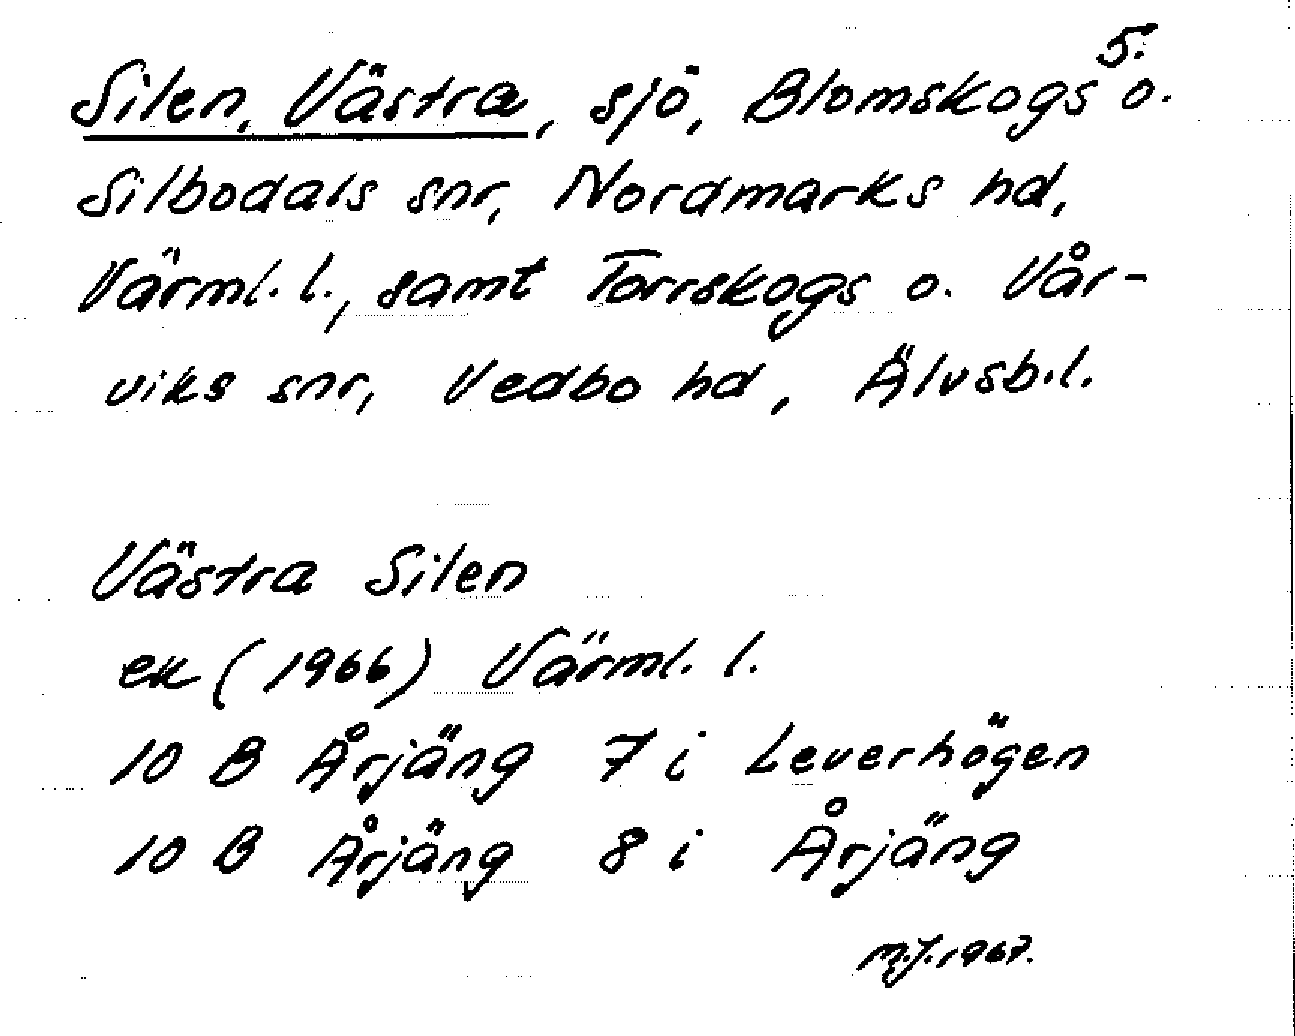 5.
Silen, Västra, sjö, Blomskogs o.
Silbodals snr, Nordmarks hd,
Värml. l., samt Torrskogs o. Vår-
viks snr, Vedbo hd, Älvsb.l.
Västra Silen
ek (1966) Värml. l.
10 B Årjäng 7 i Leverhögen
10 B Årjäng 8 i Årjäng
M.J. 1967.